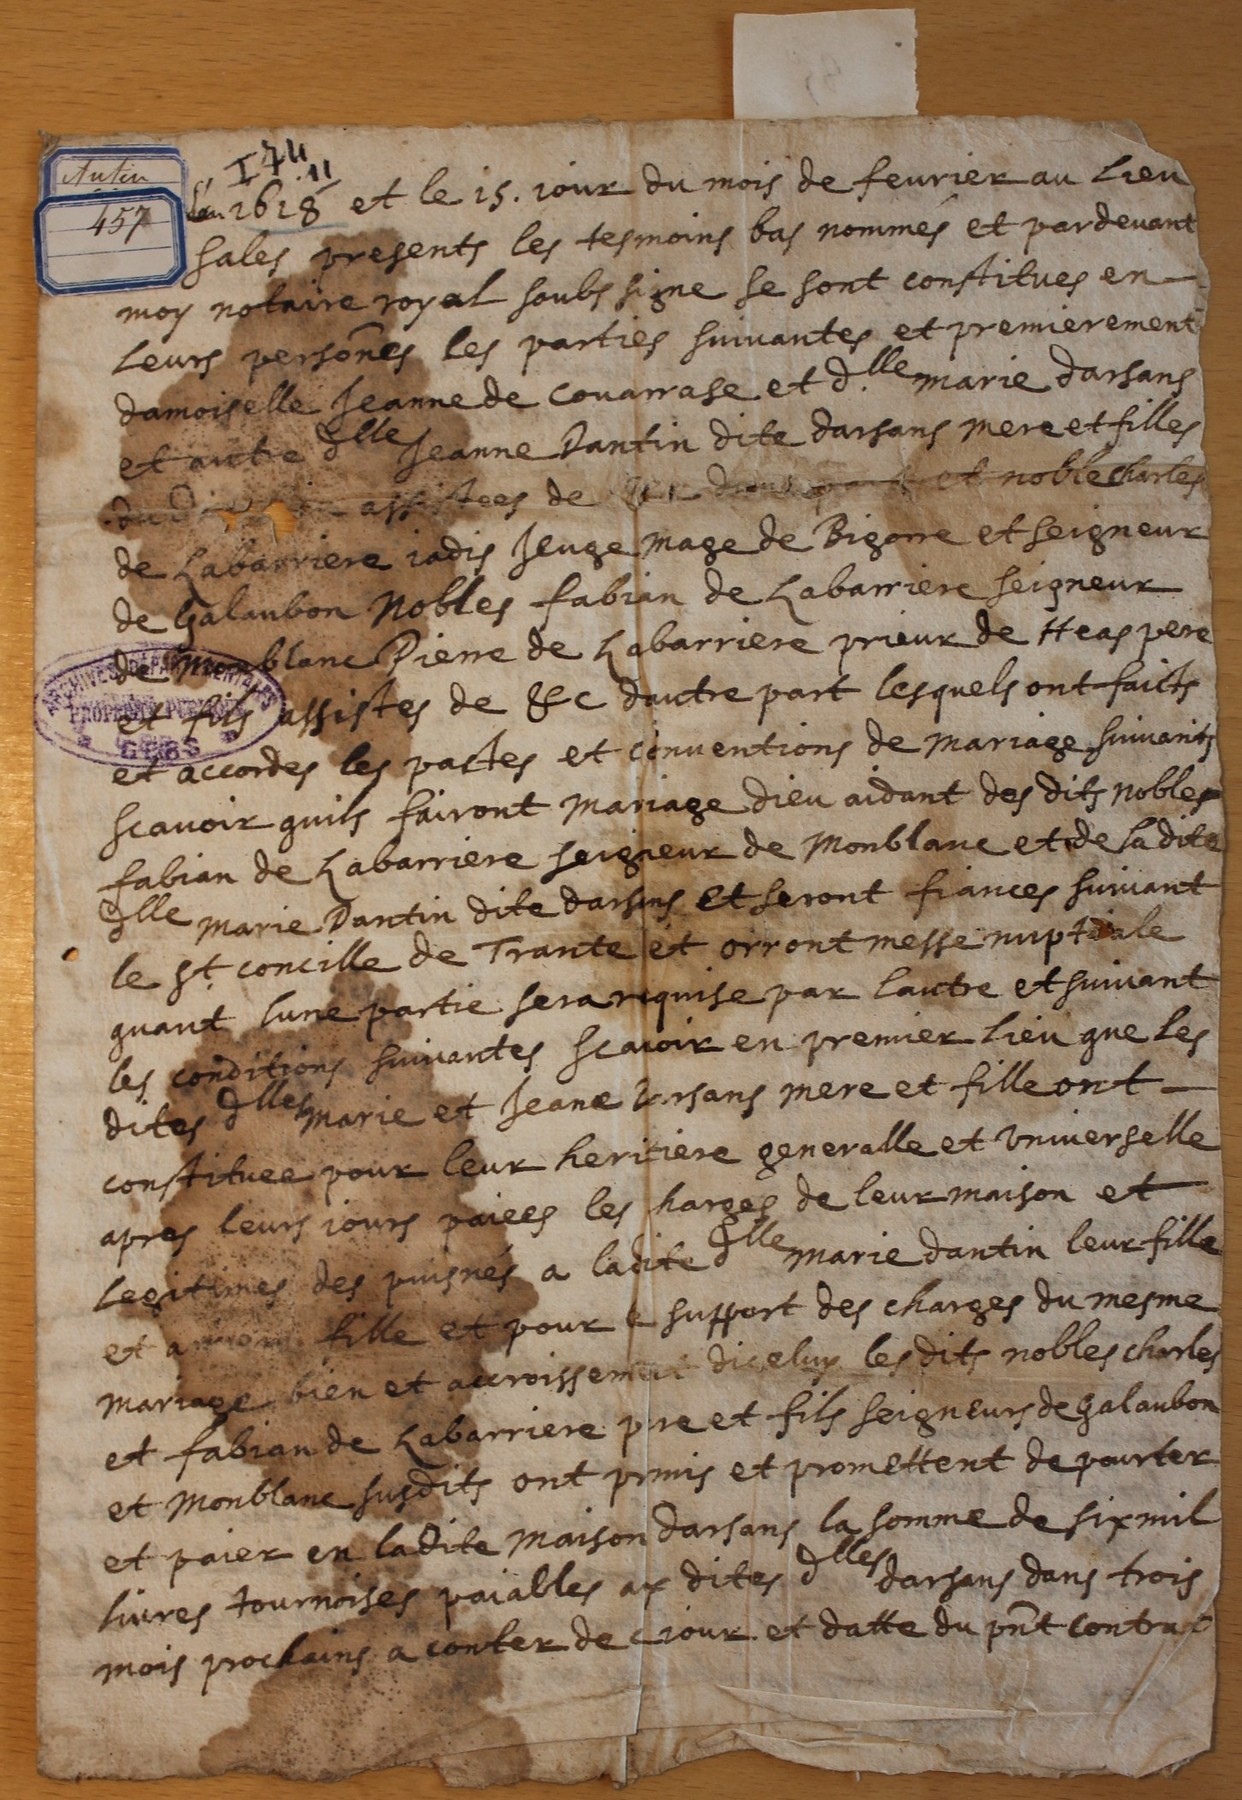 Antin
457
I 74
11
Lan 1618 et le 15. iour du mois de feurier au Lieu
sales presents les tesmoins bas nommés et pardeuant
moy notaire royal soubssigne se sont constitues en
Leurs persones les parties suiuantes et premierement
damoiselle Jeanne de Couarrase et dlle marie darsans
et autre dlle Jeanne Dantin dite darsans mere et filles
assistees de et noble charles
de Labarriere iadis Jeuge mage de Bigorre et seigneur
de Galaubon Nobles fabian de Labarriere seigneur
de Monblanc Pierre de Labarriere prieur de Heas pere
et fils assistes de &c dautre part lesquels ont faicts
et accordes les pactes et conuentions de mariage suiuants
scauoir quils fairont mariage dieu aidant des dits nobles
fabian de Labarriere seigneur de Monblanc et de la dite
dlle marie Dantin dite darsans Et seront fiances suiuant
le st. concille de Trante et orront messe nuptiale
quant lune partie sera requise par lautre et suiuant
les conditions suiuantes scauoir en premier Lieu que les
dites dlles marie et Jeane Darsans mere et fille ont
constituee pour leur heritiere generalle et vniuerselle
apres leurs iours paiees les harges de leur maison et
Legitimes des puisnés a ladite dlle marie dantin leur fille
et fille et pour le support des charges du mesme
mariage bien et accroissement diceluy les dits nobles charles
et fabian de Labarriere pere et fils seigneurs de Galaubon
et Monblanc susdits ont prmis et promettent de pourter
et paier en ladite maison darsans la somme de six mil
liures tournoises paiables ax dites dlles darsans dans trois
mois prochains a conter de c iour et datte du pnt contrat
ARCHIVES DÉPARTEMENTALES
PROPRIÉTÉ PUBLIQUE
GERS